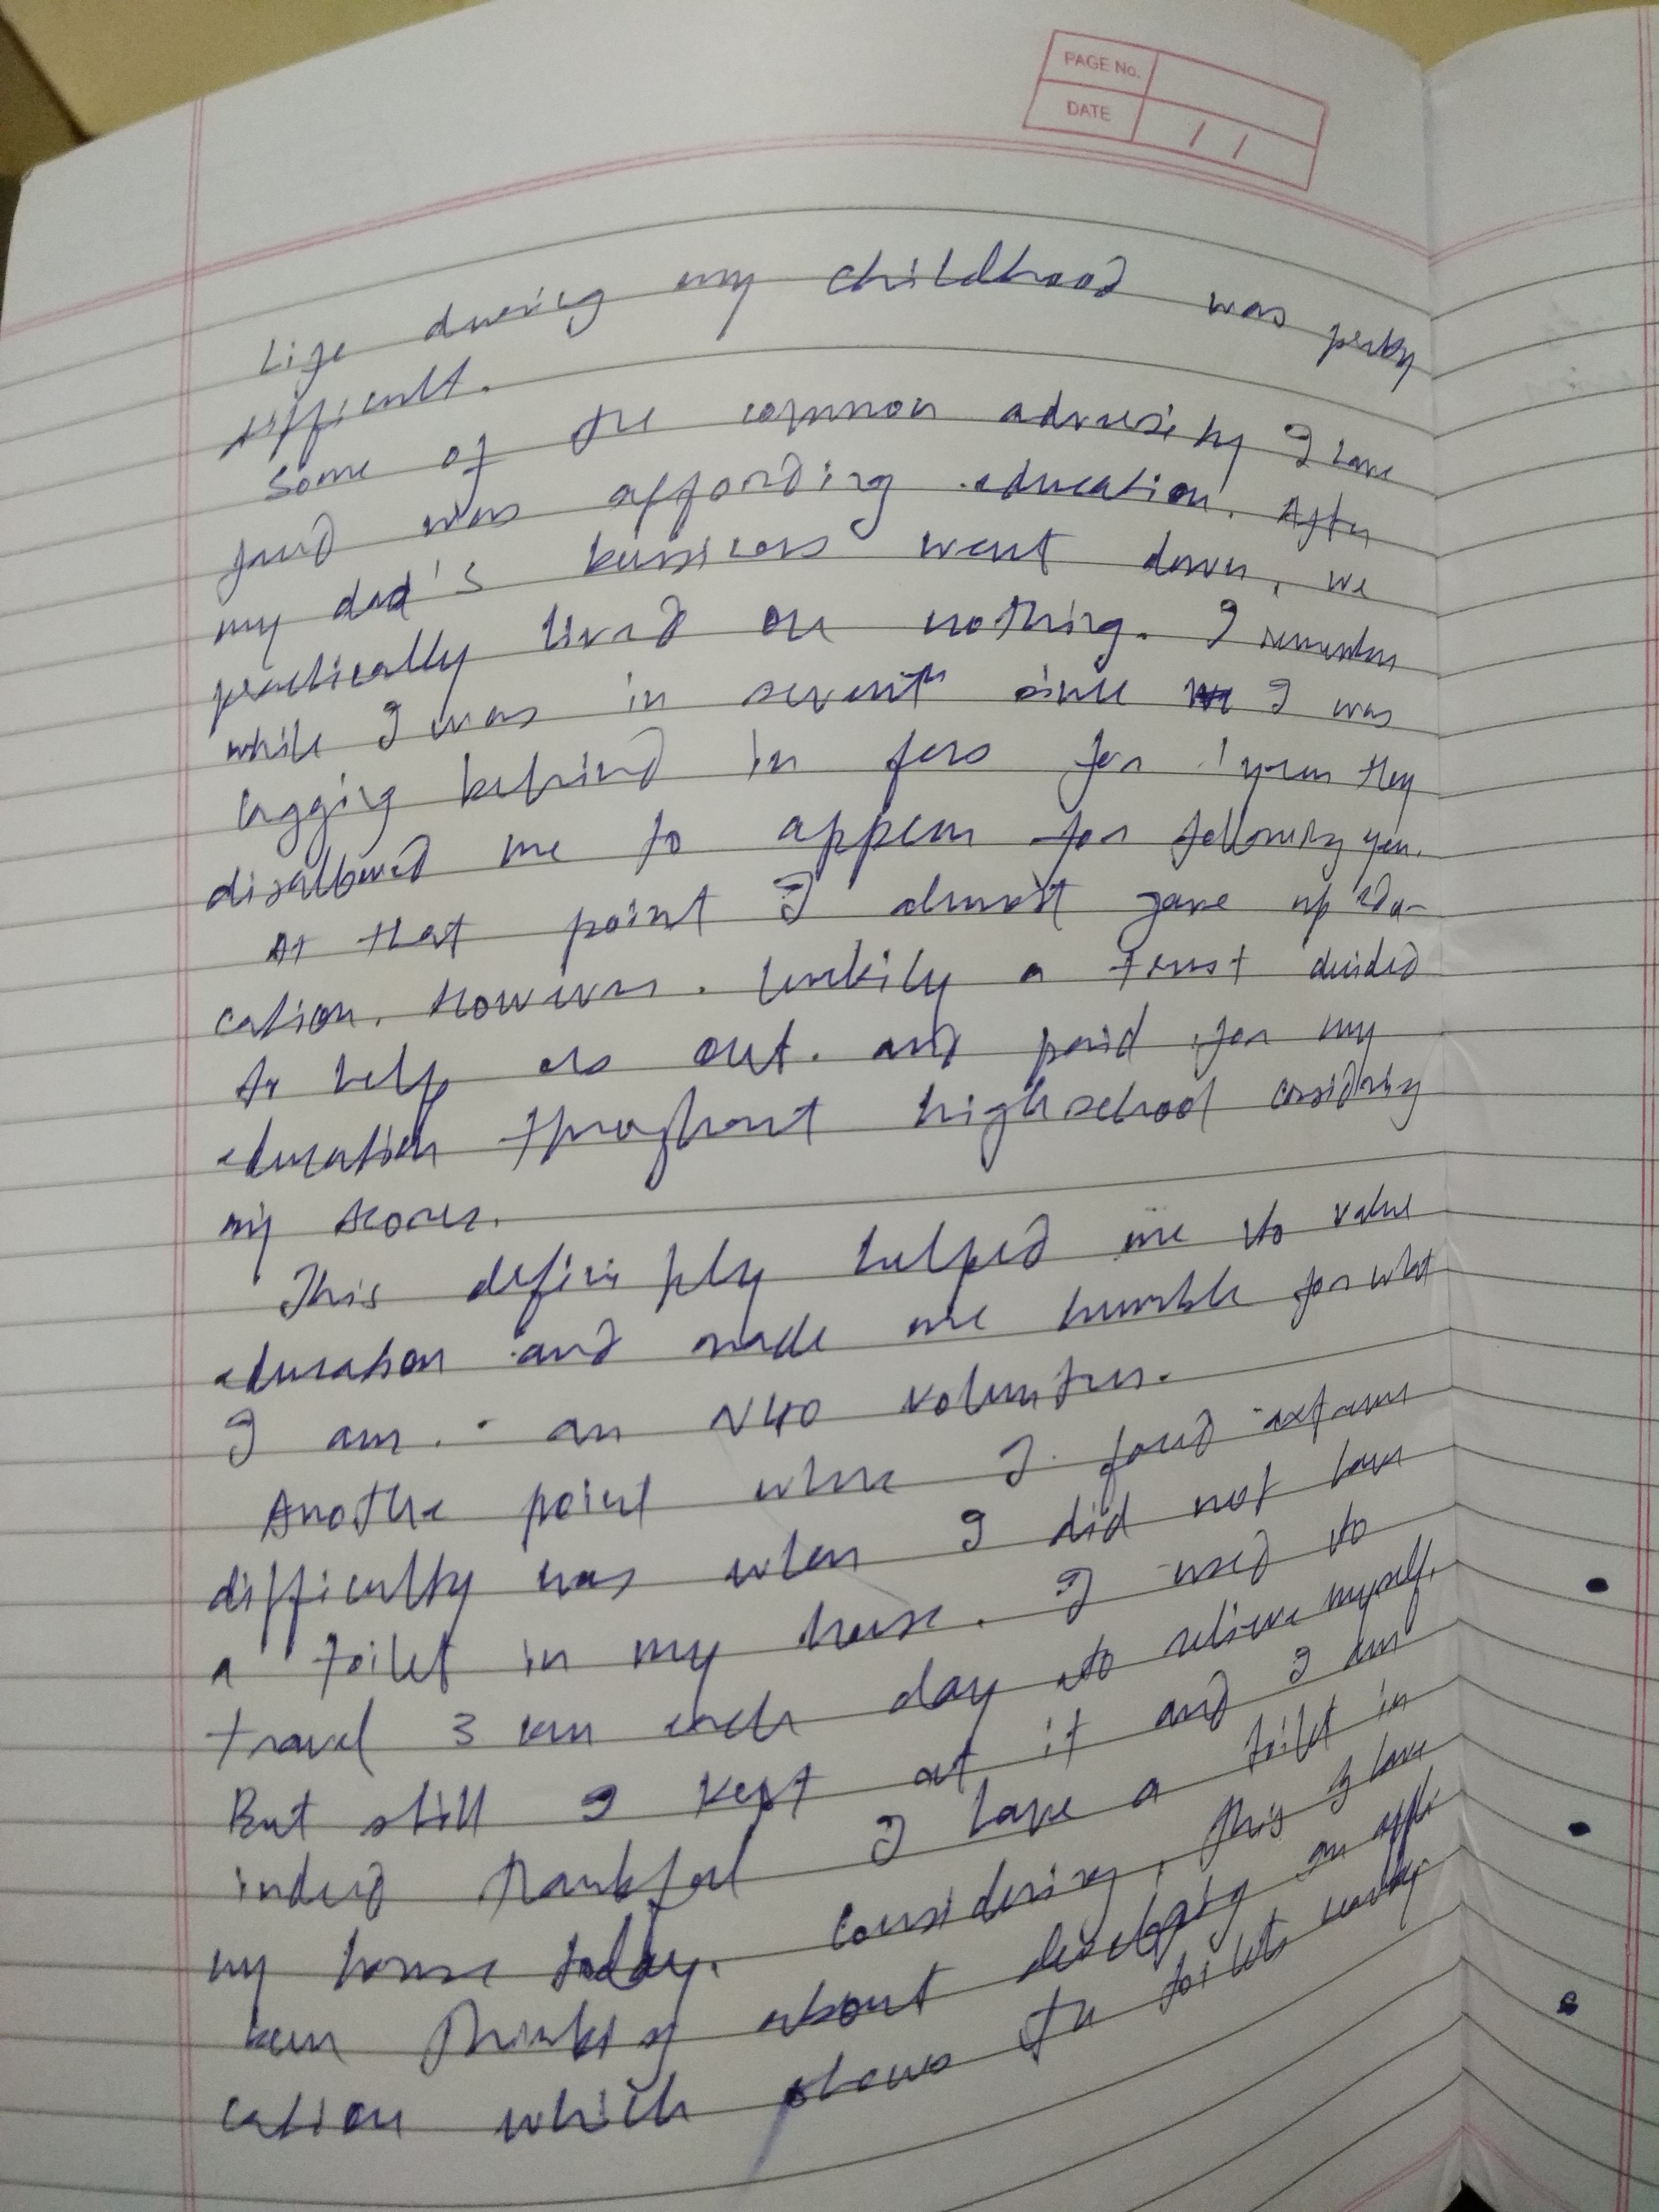 PAGE No.
DATE / /
Life during my childhood was pretty
difficult.
Some of the common adversity I have
faced was affording education. After
my dad's bussiness went down, we
practically lived on nothing. I remember
while I was in seventh since I was
lagging behind in fees for 1 year they
disallowed me to appear for following year.
At that point I almost gave up edu-
cation. However. luckily a trust decided
to help us out. and paid for my
education throughout highschool considring
my scores.
This definitely helped me to value
education and made me humble for what
I am. an NGO volunteer.
Another point where I faced extreme
difficulty was when I did not have
a toilet in my house. I used to
travel 3 km each day to relieve myself.
But still I kept at it and I am
indeed thankful I have a toilet in
my house today. Considering, this I have
been thinking about developing an appli-
cation which shows the toilets nearby